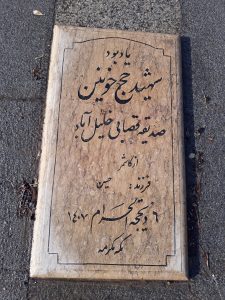 یادبود
شهید حج خونین
صدیقه قصابی خلیل آباد
از کاشمر
فرزند: حسین
۶ ذیحجه الحرام ۱۴۰۷
مکه مکرمه